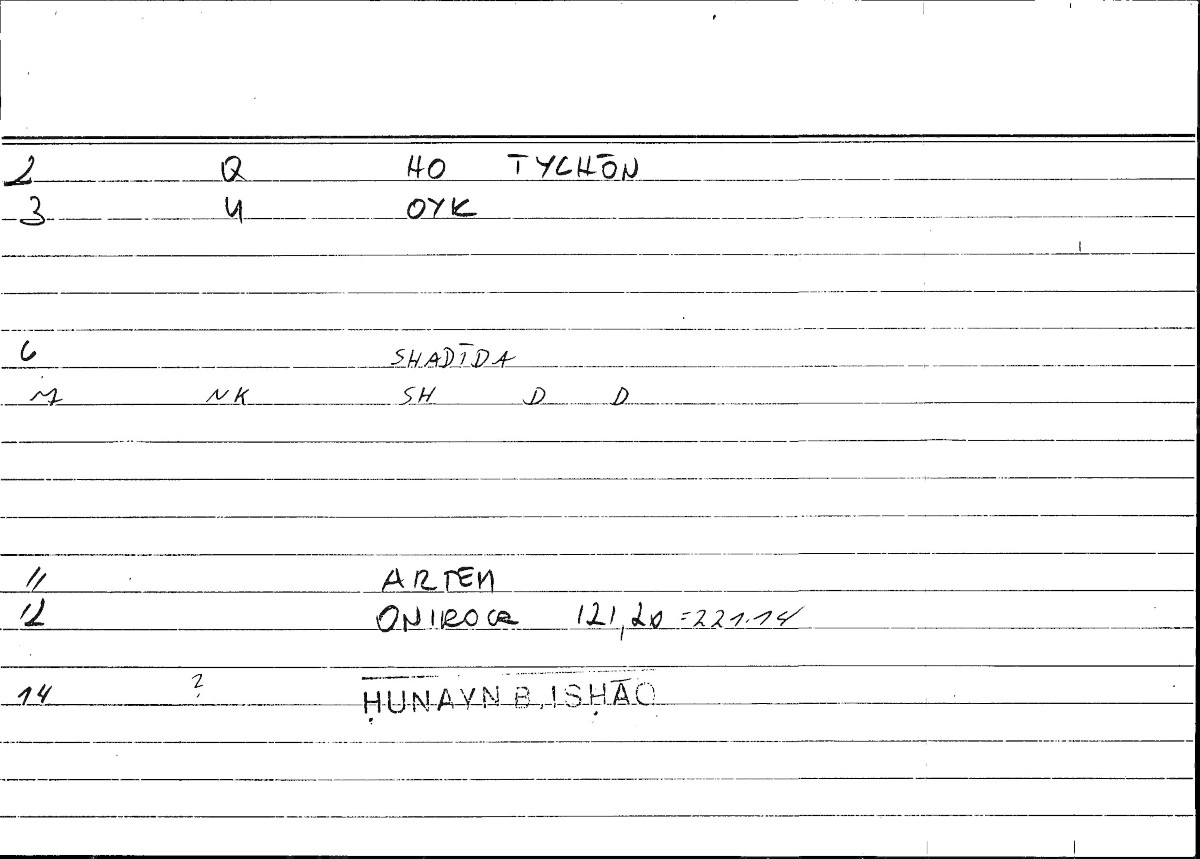 2 Q HO TYCHŌN
3 4 OYK
6 SHADĪDA
M NK SH D D
11 ARTEM
12 ONIROCR 121,20 =221.14
14 ? ḤUNAYN B. ISḤĀQ